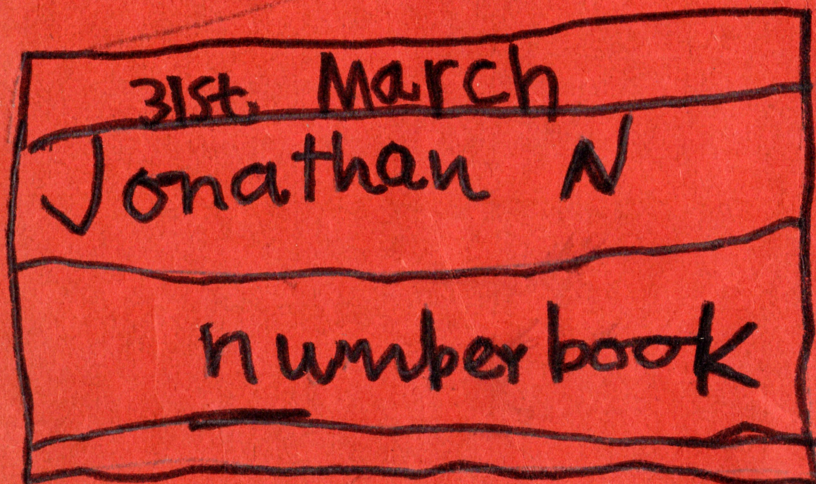 31st. March
Jonathan N
number book